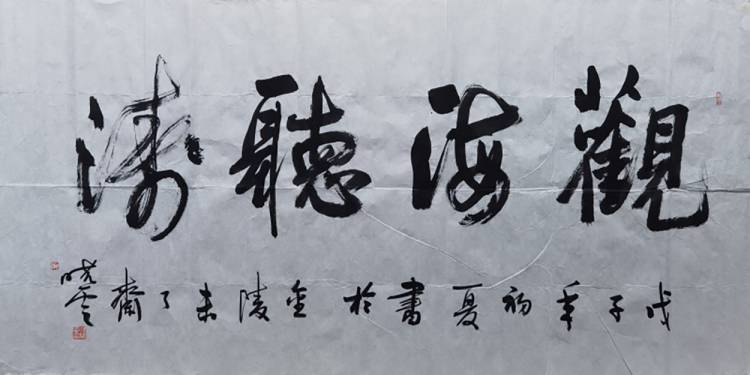 觀海聽涛
戊子年初夏書於金陵未了齋
晓雲